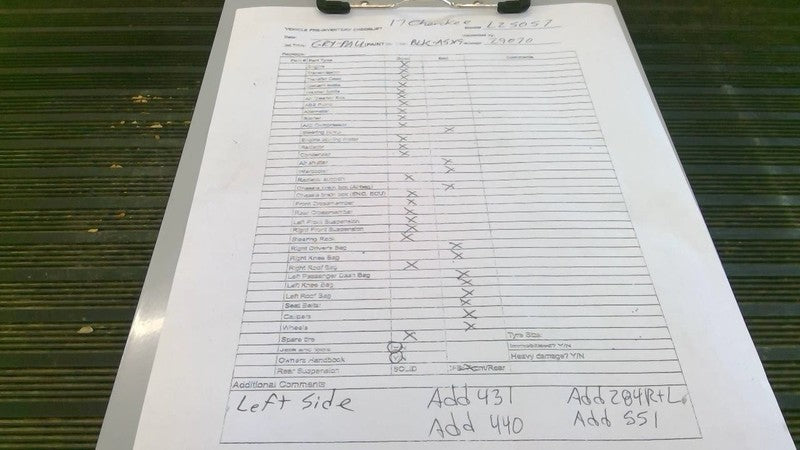 17 Cherokee L25057
VEHICLE PRE-INVENTORY CHECKLIST
Date:
GRY-PAU PAINT BLK-A5X9 29070
Part Type Good Bad Comments
Engine X
Transmission X
Transfer Case X
X
X
X
X
Alternator X
Starter X
A/C Compressor X
Steering pump X
X
Radiator X
Condenser X
X
Intercooler X
Radiator support X
Chassis brain box (Airbag) X
Chassis brain box (ENG, ECU) X
Front Crossmember X
Rear Crossmember X
Left Front Suspension X
Right Front Suspension X
Steering Rack X
Right Drivers Bag X
Right Knee Bag X
Right Roof Bag X
Left Passenger Dash Bag X
Left Knee Bag X
Left Roof Bag X
Seat Belts X
Calipers X
Wheels X
Spare tire X Tyre Size:
Jack and tools Immobilised? Y/N
Owners Handbook Heavy damage? Y/N
Rear Suspension SOLID
Additional Comments
Left Side Add 431 Add 284R+L
Add 440 Add 551